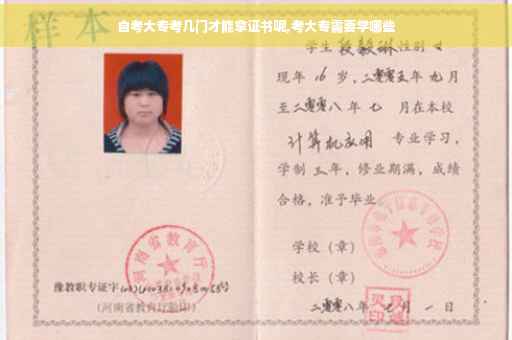 自考大专考几门才能拿证书呢,考大专需要学哪些
样本
学生 段毅琳 性别 女
现年 16 岁,二零零五年 九 月
至二零零八年 七 月在本校
计算机应用 专业学习,
学制 三 年,修业期满,成绩
合格,准予毕业。
学校(章)
校长(章)
二零零八年 七 月 一 日
河南省教育厅
豫教职专证字
(河南省教育厅验印)